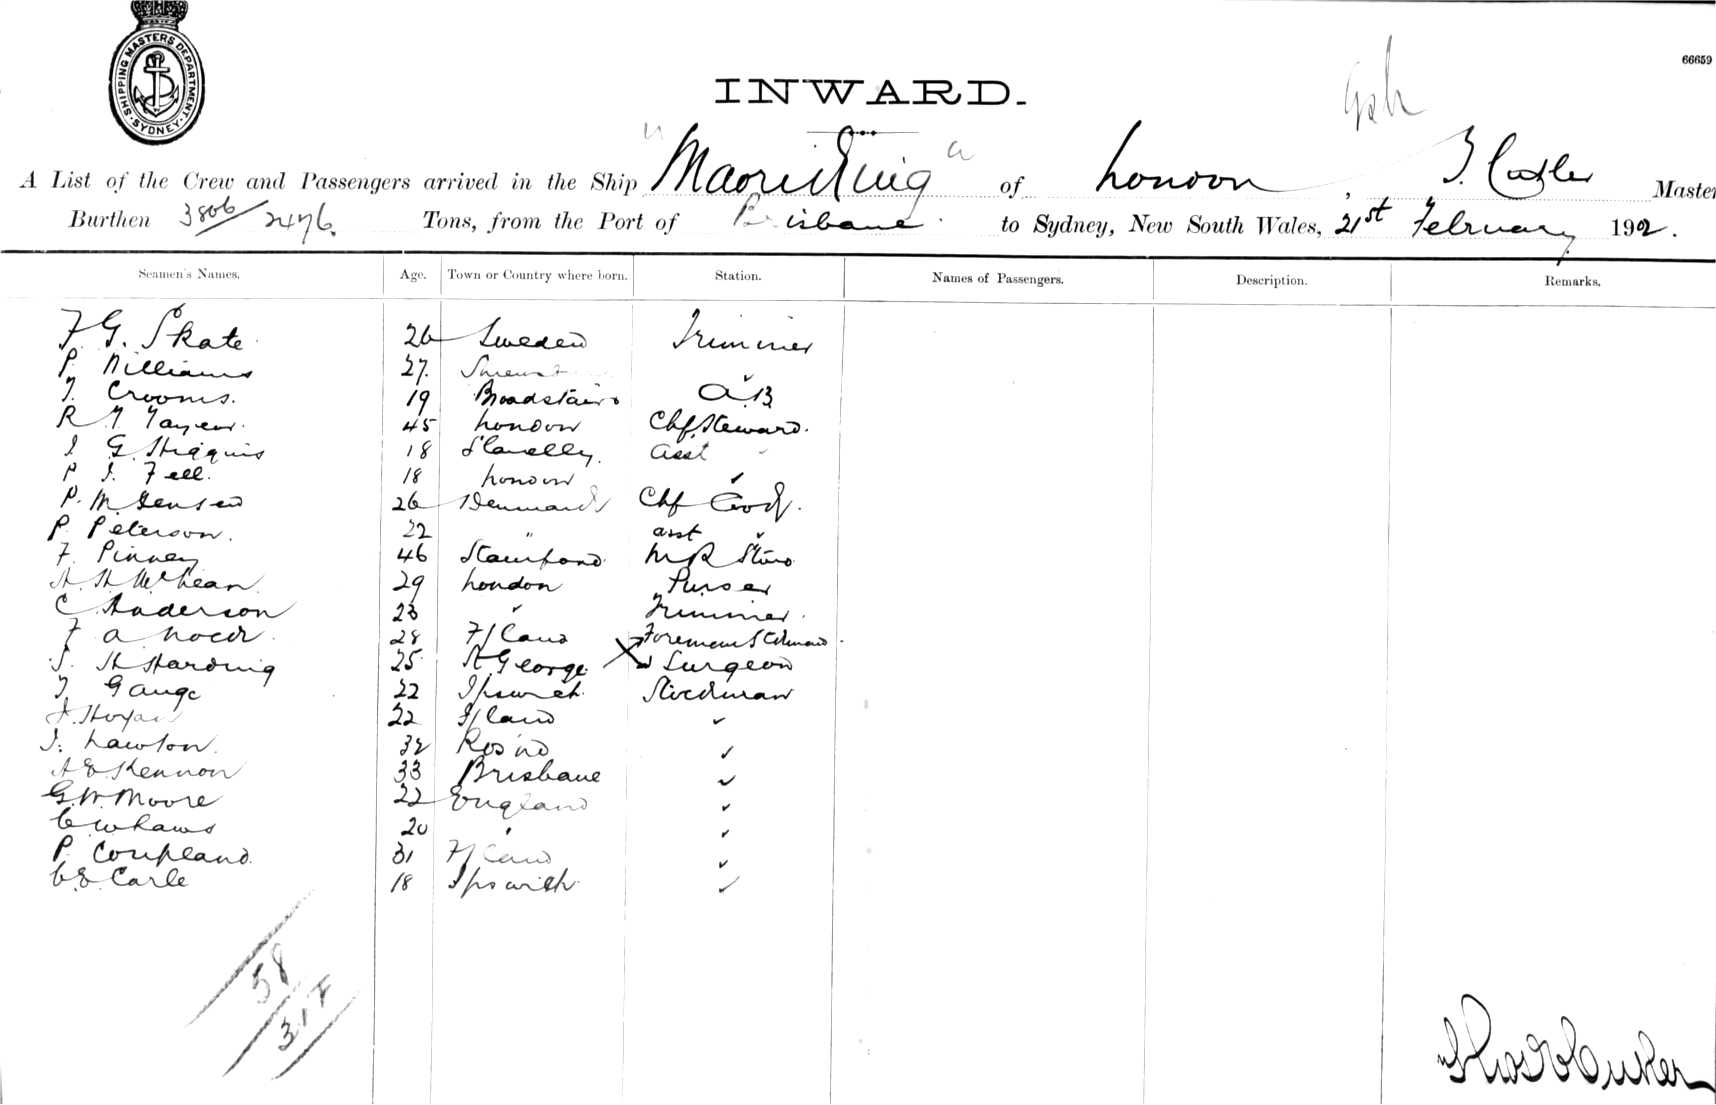 SHIPPING MASTERS DEPARTMENT
SYDNEY
66659
INWARD.
A List of the Crew and Passengers arrived in the Ship "Maori King" of London, Master
Burthen 3806/2476 Tons, from the Port of Brisbane to Sydney, New South Wales, 21st February 1902.
Seamen's Names. Age. Town or Country where born. Station. Names of Passengers. Description. Remarks.
F G. Skate 26 Sweden Trimmer
P. Williams 27
T. Crooms. 19 Broadstairs A.B
R 45 London Chf Steward.
J G Higgins 18 Llanelly. asst
P J. Fell. 18 London
P. M Jensen 26 Denmark Chf Cook.
P. Peterson. 22 " asst "
F. Pinney 46 Stamford M R Stwd
A. H. McLean 29 London Purser
C Anderson 23 " Trimmer.
F a 28 F/Land Foreman
S. H Harding 25 St George Surgeon
T. Gauge 22 Ipswich
J. Hogan 22 I/land
J. Lawton. 32
A E Kennon 33 Brisbane
G. W. Moore 22 England
C W Laws 20 "
P. Coupland. 31 F/Land
C. E. Carle 18 Ipswich
58
31 F